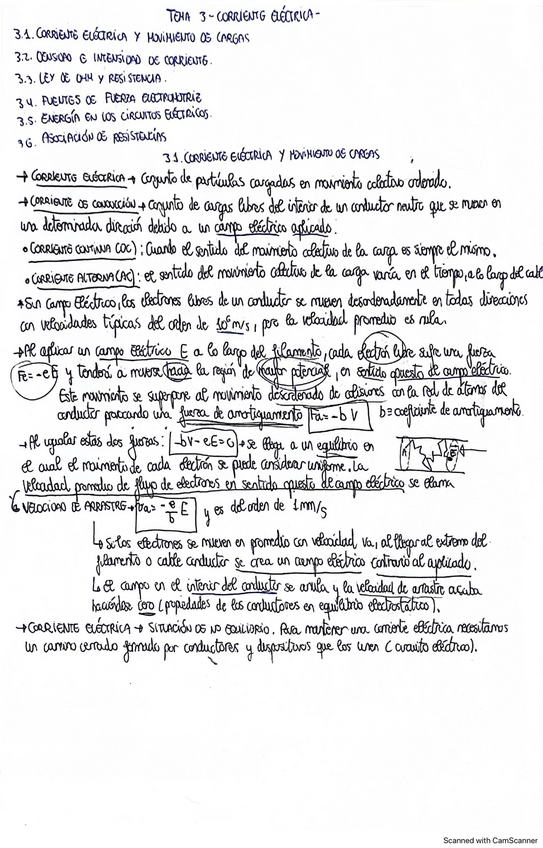 TEMA 3 - CORRIENTE ELÉCTRICA -
3.1. CORRIENTE ELÉCTRICA Y MOVIMIENTO DE CARGAS
3.2. DENSIDAD E INTENSIDAD DE CORRIENTE.
3.3. LEY DE OHM Y RESISTENCIA.
3.4. FUENTES DE FUERZA ELECTROMOTRIZ
3.5. ENERGÍA EN LOS CIRCUITOS ELÉCTRICOS.
3.6. ASOCIACIÓN DE RESISTENCIAS
3.1. CORRIENTE ELÉCTRICA Y MOVIMIENTO DE CARGAS
→ CORRIENTE ELÉCTRICA → Conjunto de partículas cargadas en movimiento colectivo ordenado.
→ CORRIENTE DE CONDUCCIÓN → Conjunto de cargas libres del interior de un conductor neutro que se mueven en
una determinada dirección debido a un campo eléctrico aplicado:
• CORRIENTE CONTINUA (DC): Cuando el sentido del movimiento colectivo de la carga es siempre el mismo.
• CORRIENTE ALTERNA (AC): el sentido del movimiento colectivo de la carga varía en el tiempo, a lo largo del cable
* Sin campo Eléctrico, los electrones libres de un conductor se mueven desordenadamente en todas direcciones
con velocidades típicas del orden de 10⁶ m/s, pero la velocidad promedio es nula.
→ Al aplicar un campo eléctrico E a lo largo del filamento, cada electrón libre sufre una fuerza
Fe = -e E y tenderá a moverse hacia la región de mayor potencial, en sentido opuesto de campo eléctrico.
Este movimiento se superpone al movimiento desordenado de colisiones con la red de átomos del
conductor provocando una fuerza de amortiguamiento Fa = -b V b = coeficiente de amortiguamiento.
→ Al igualar estas dos fuerzas: -bV - eE = 0 → se llega a un equilibrio en
el cual el movimiento de cada electrón se puede considerar uniforme. La
velocidad promedio de flujo de electrones en sentido opuesto de campo eléctrico se llama
VELOCIDAD DE ARRASTRE → Va = -e/b E y es del orden de 1 mm/s
↳ Si los electrones se mueven en promedio con velocidad Va, al llegar al extremo del
filamento o cable conductor se crea un campo eléctrico contrario al aplicado.
↳ El campo en el interior del conductor se anula y la velocidad de arrastre acaba
haciéndose cero (propiedades de los conductores en equilibrio electrostático).
→ CORRIENTE ELÉCTRICA → SITUACIÓN DE NO EQUILIBRIO. Para mantener una corriente eléctrica necesitamos
un camino cerrado formado por conductores y dispositivos que los unen (circuito eléctrico).
Scanned with CamScanner